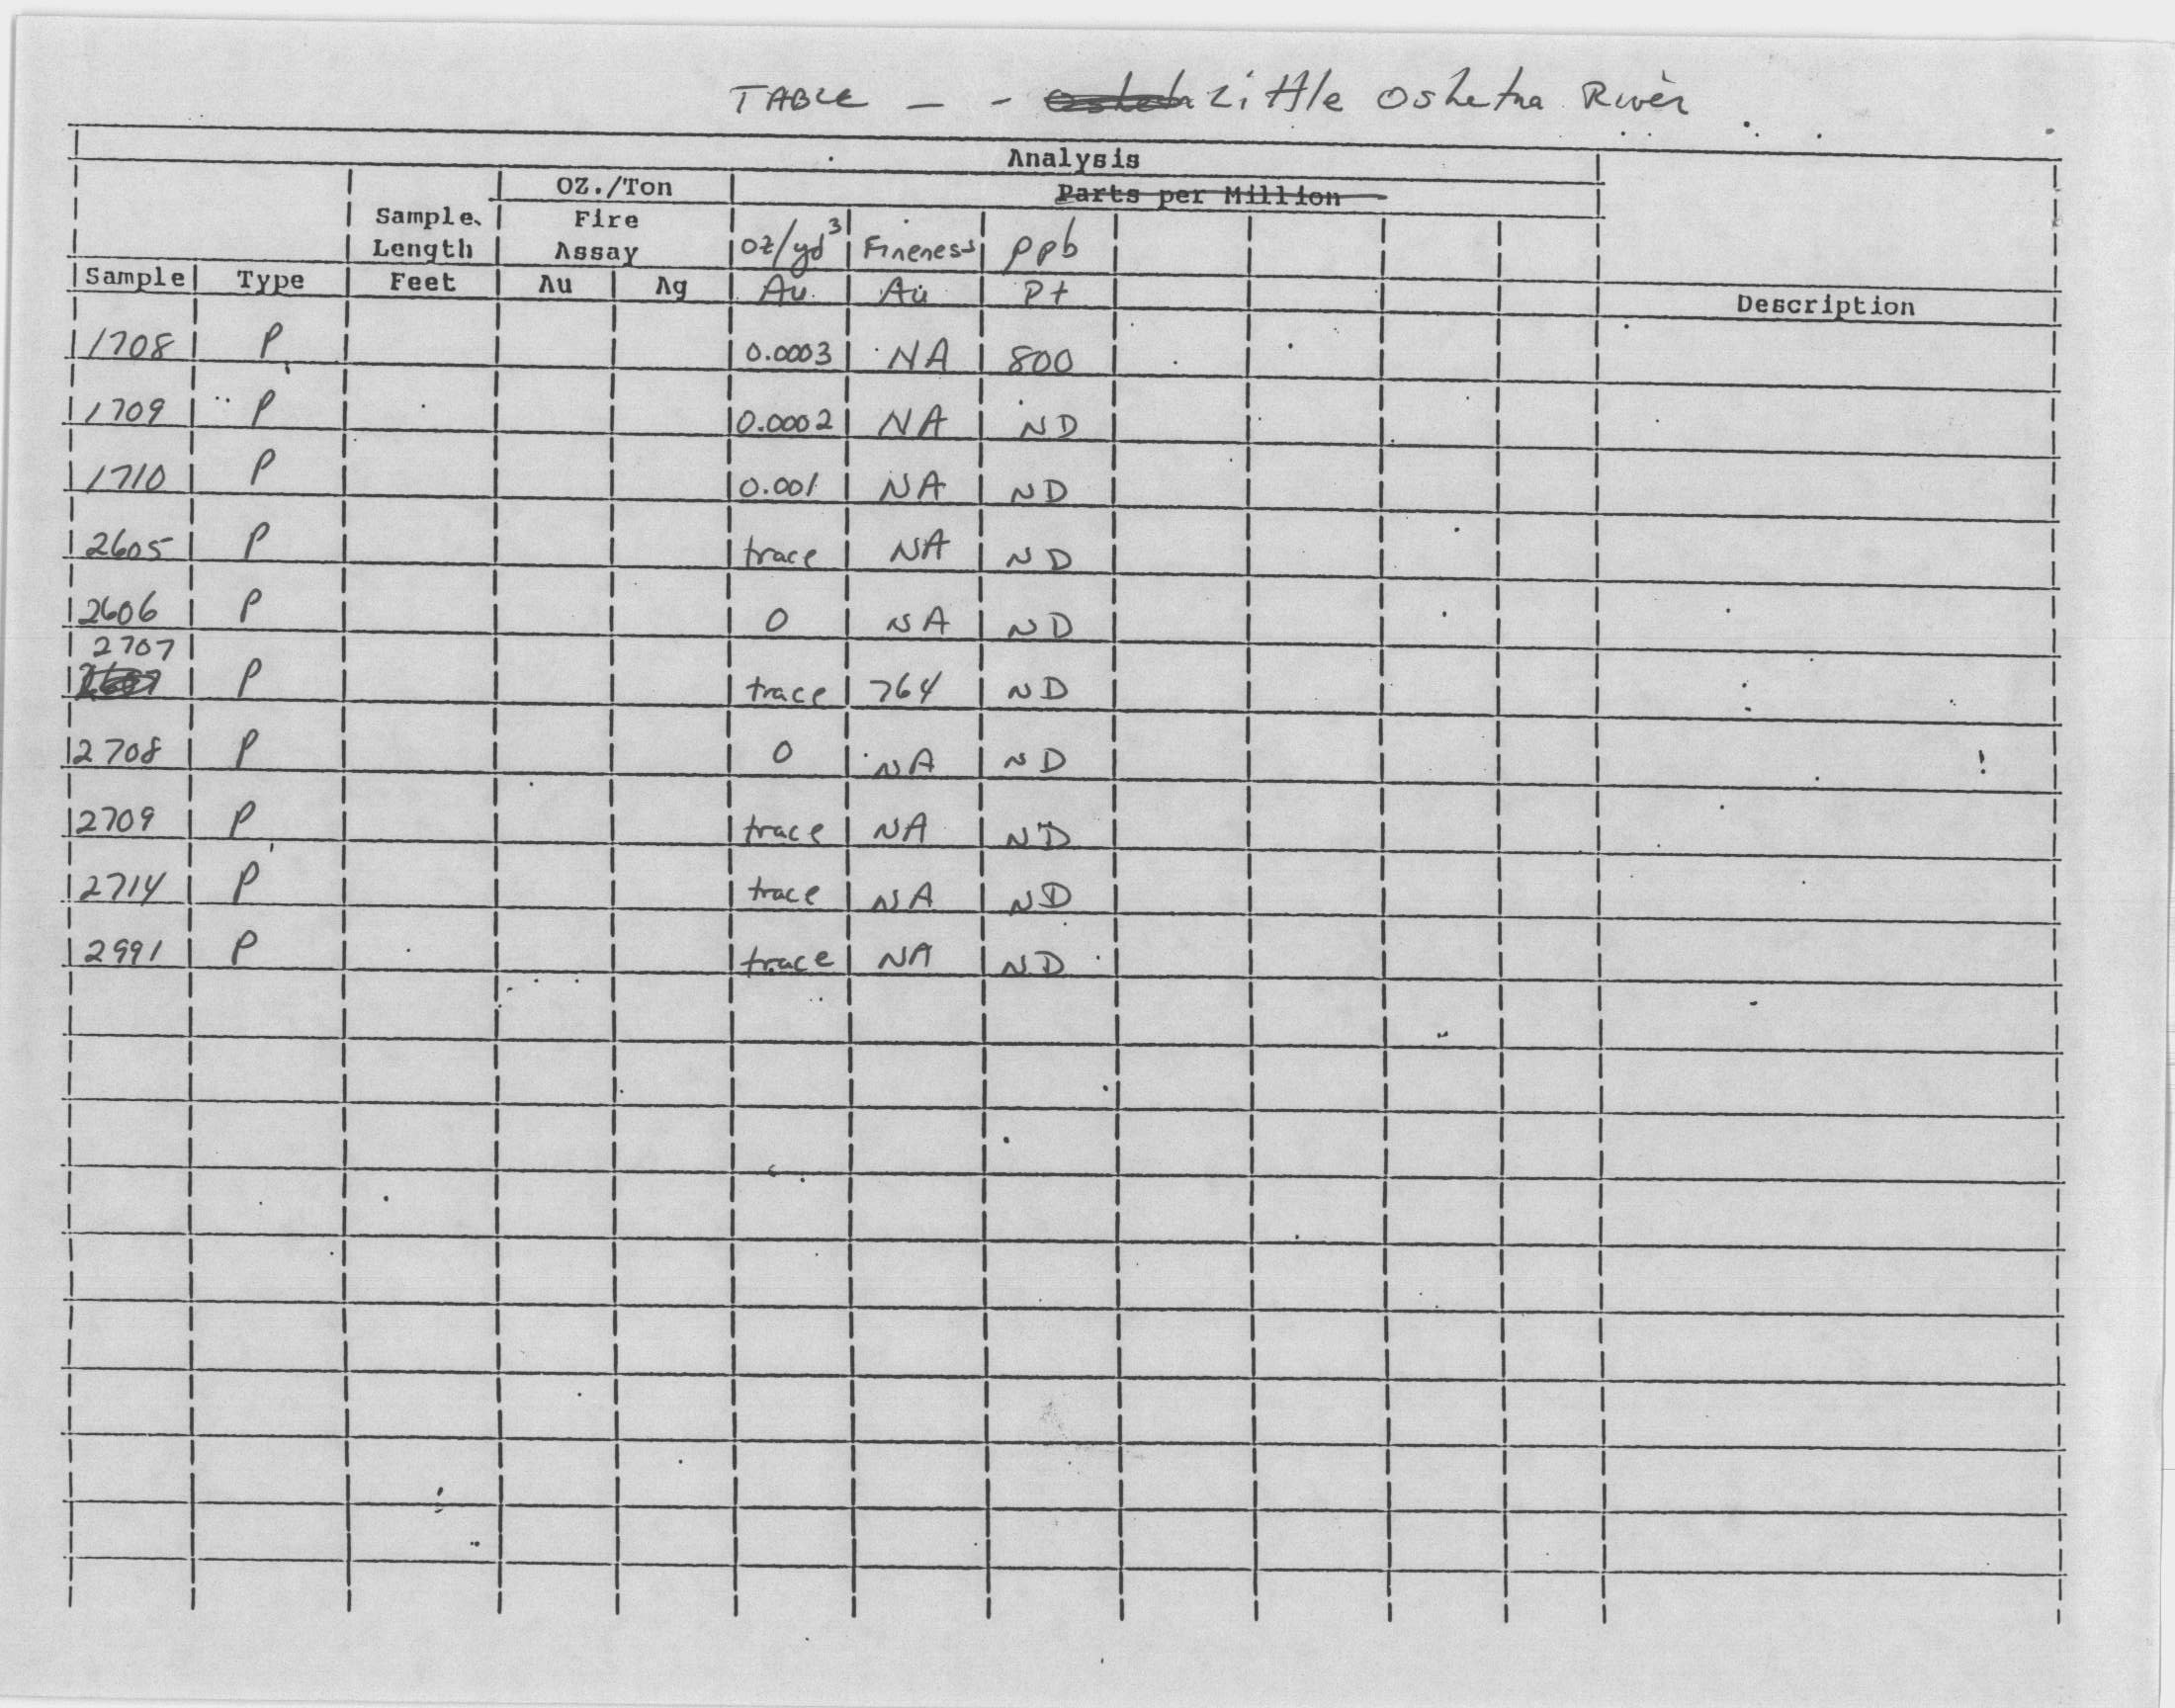 TABLE – - Little Oshetna River
Analysis
OZ./Ton Parts per Million
Sample Fire
Length Assay oz/yd³ Fineness ppb
Sample Type Feet Au Ag Au Au Pt Description
1708 P 0.0003 NA 800
1709 P 0.0002 NA ND
1710 P 0.001 NA ND
2605 P trace NA ND
2606 P 0 NA ND
2707
P trace 764 ND
2708 P 0 NA ND
2709 P trace NA ND
2714 P trace NA ND
2991 P trace NA ND